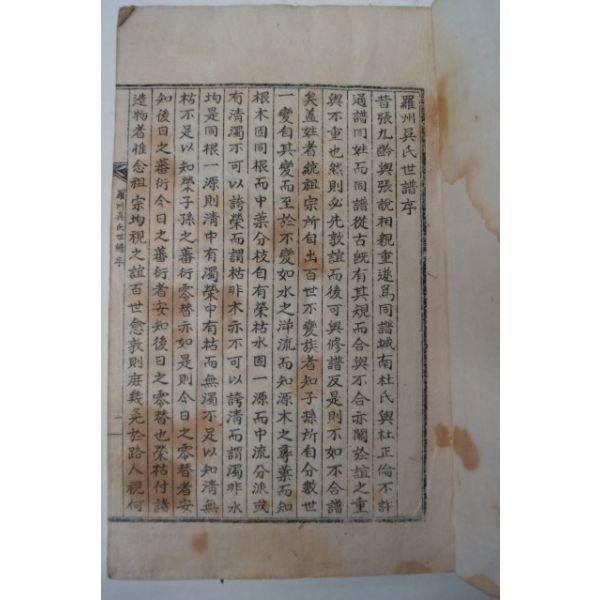 羅州吳氏世譜序
昔張九齡與張說相親重遂爲同譜城南杜氏與杜正倫不許
通譜同姓而同譜從古旣有其規而合與不合亦關於誼之重
與不重也然則必先敦誼而後可與修譜反是則不如不合譜
矣盖姓者統祖宗所自出百世不變族者知子孫所自分數世
一變自其變而至於不變如水之洋流而知源木之蓴葉而知
根木固同根而中葉分枝自有榮枯水固一源而中流分派或
有淸濁不可以誇榮而謂枯非木亦不可以誇淸而謂濁非水
均是同根一源則淸中有濁榮中有枯而無濁不足以知淸無
枯不足以知榮子孫之蕃衍零替亦如是則今日之零替者安
知後日之蕃衍今日之蕃衍者安知後日之零替也榮枯付諸
造物者惟念祖宗均視之誼百世愈敦則庭幾免於路人視何
羅州吳氏世譜序
一